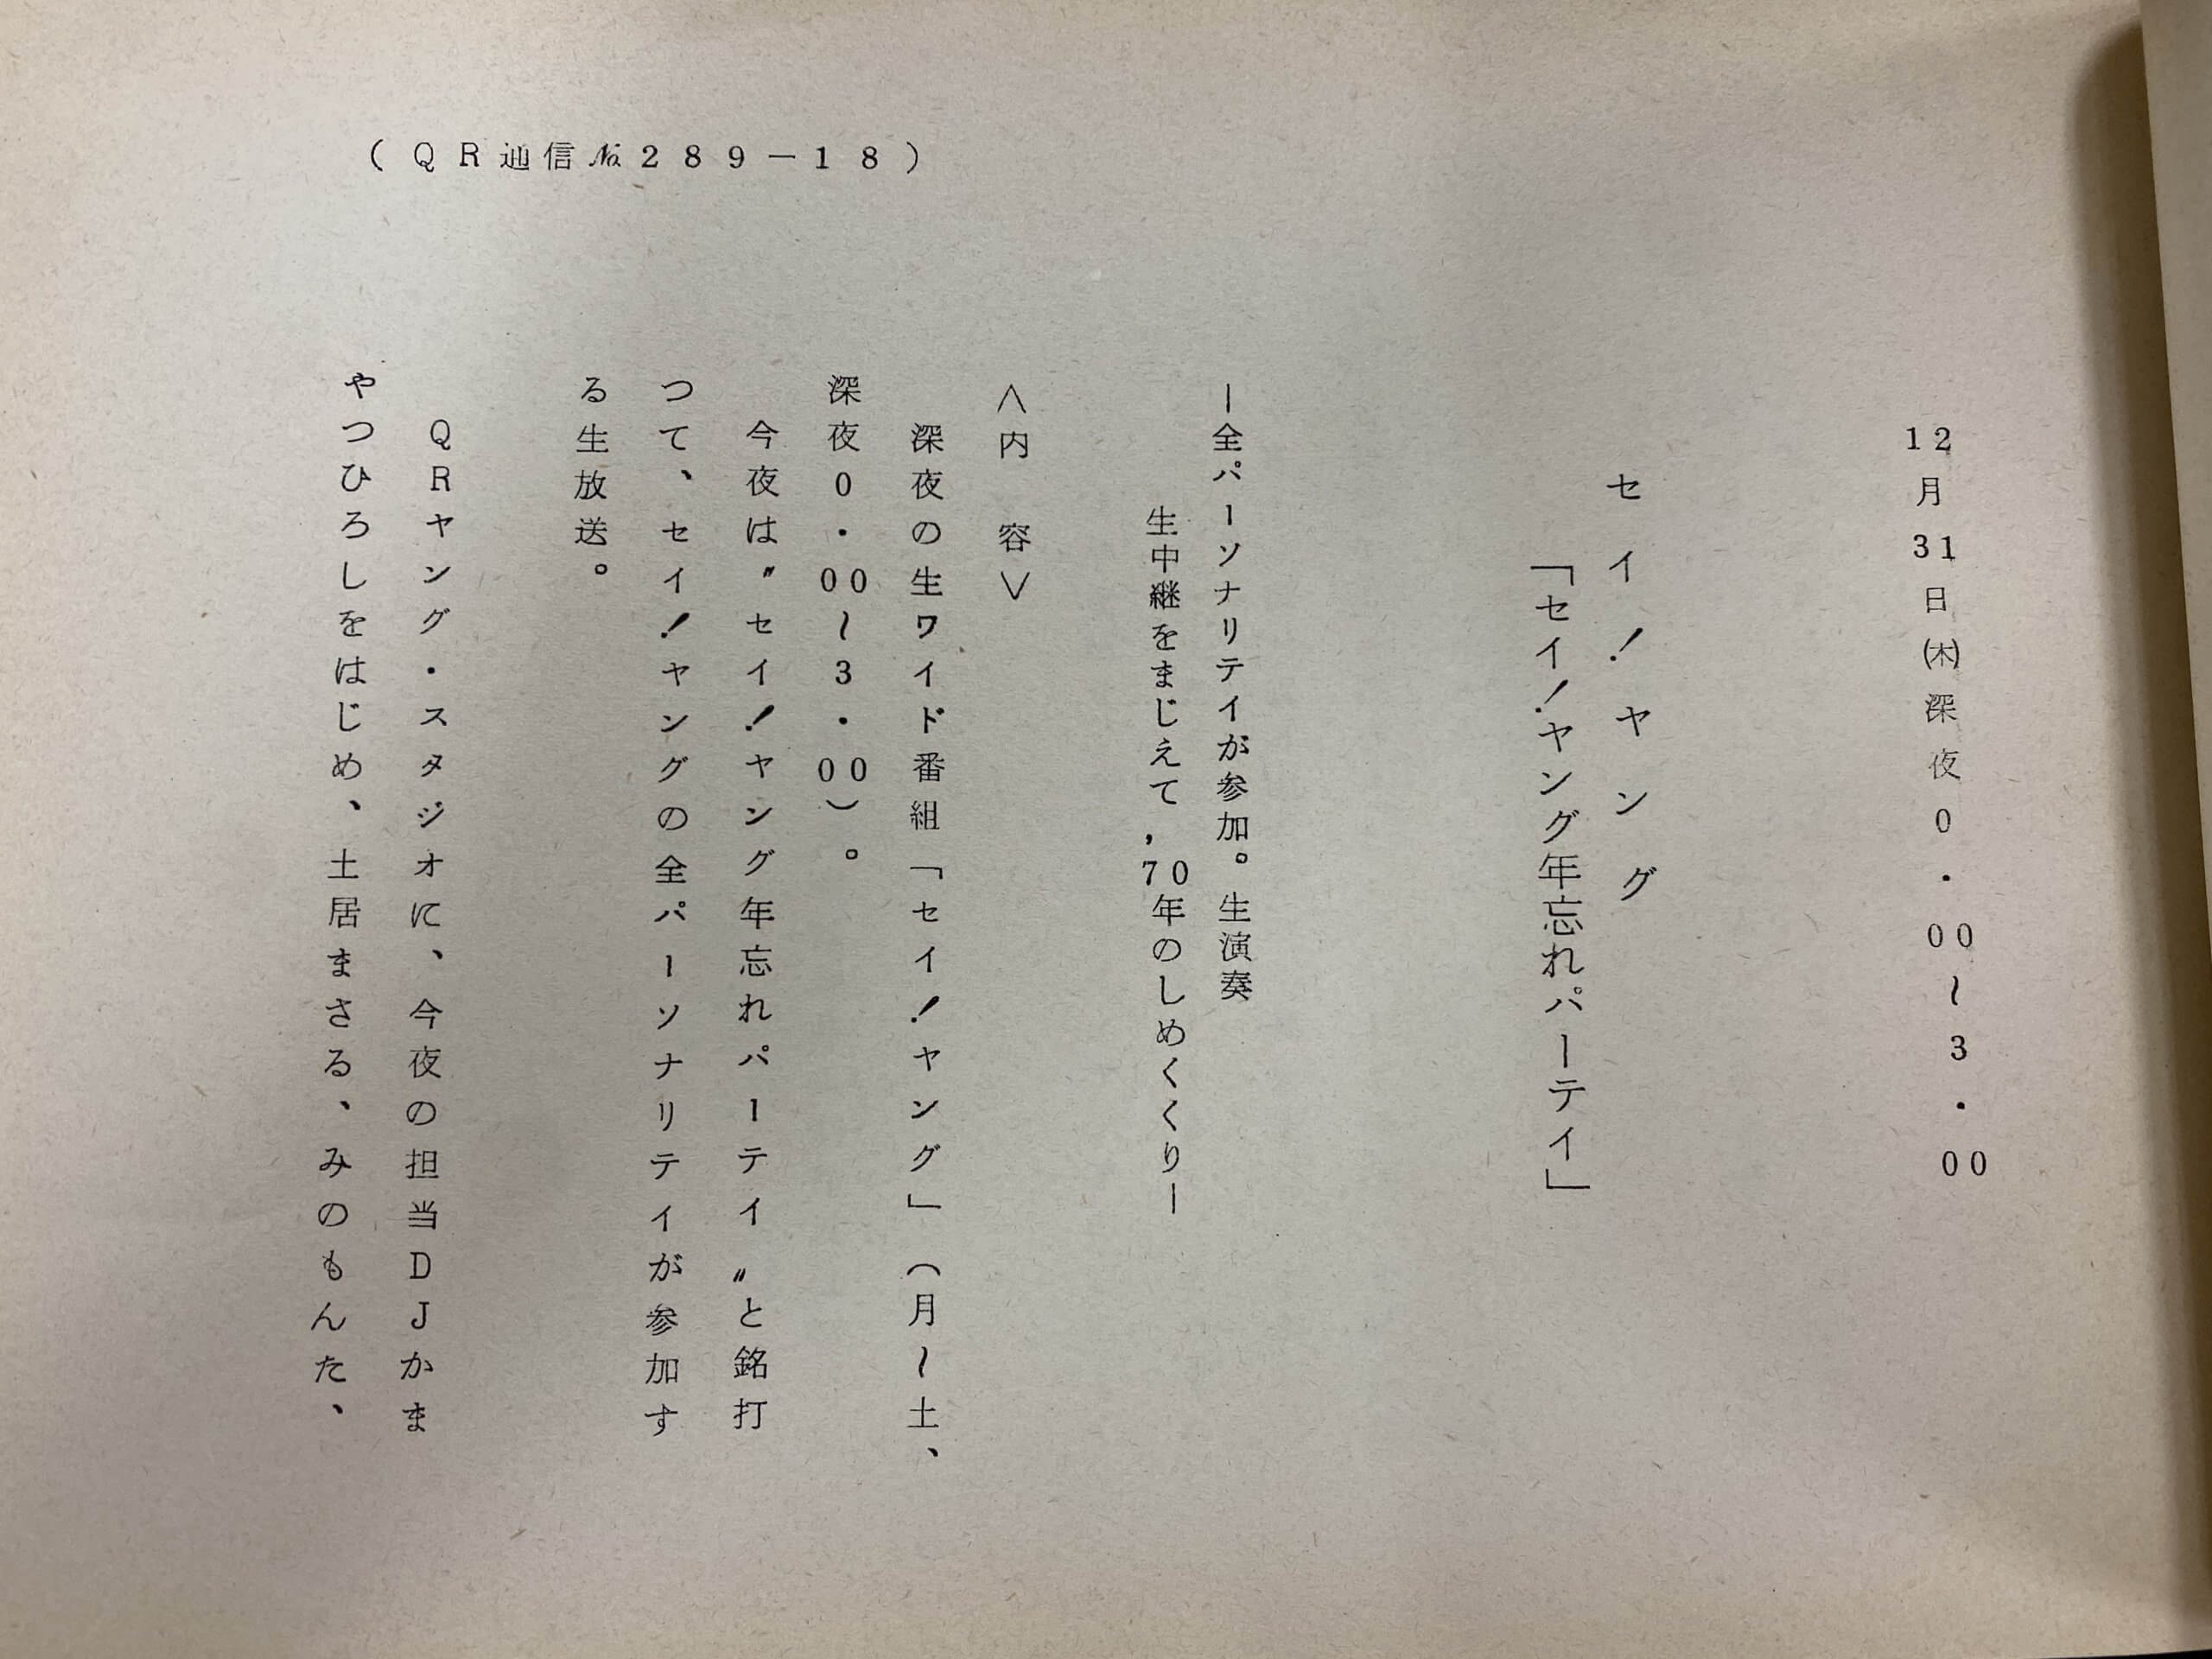 (QR通信№289-18)
12月31日(木)深夜0・00〜3・00
セイ！ヤング
「セイ！ヤング年忘れパーテイ」
ー全パーソナリテイが参加。生演奏
生中継をまじえて,70年のしめくくりー
<内　容>
深夜の生ワイド番組「セイ！ヤング」(月〜土、
深夜0・00〜3・00)。
今夜は〝セイ！ヤング年忘れパーテイ〟と銘打
つて、セイ！ヤングの全パーソナリテイが参加す
る生放送。
QRヤング・スタジオに、今夜の担当DJかま
やつひろしをはじめ、土居まさる、みのもんた、